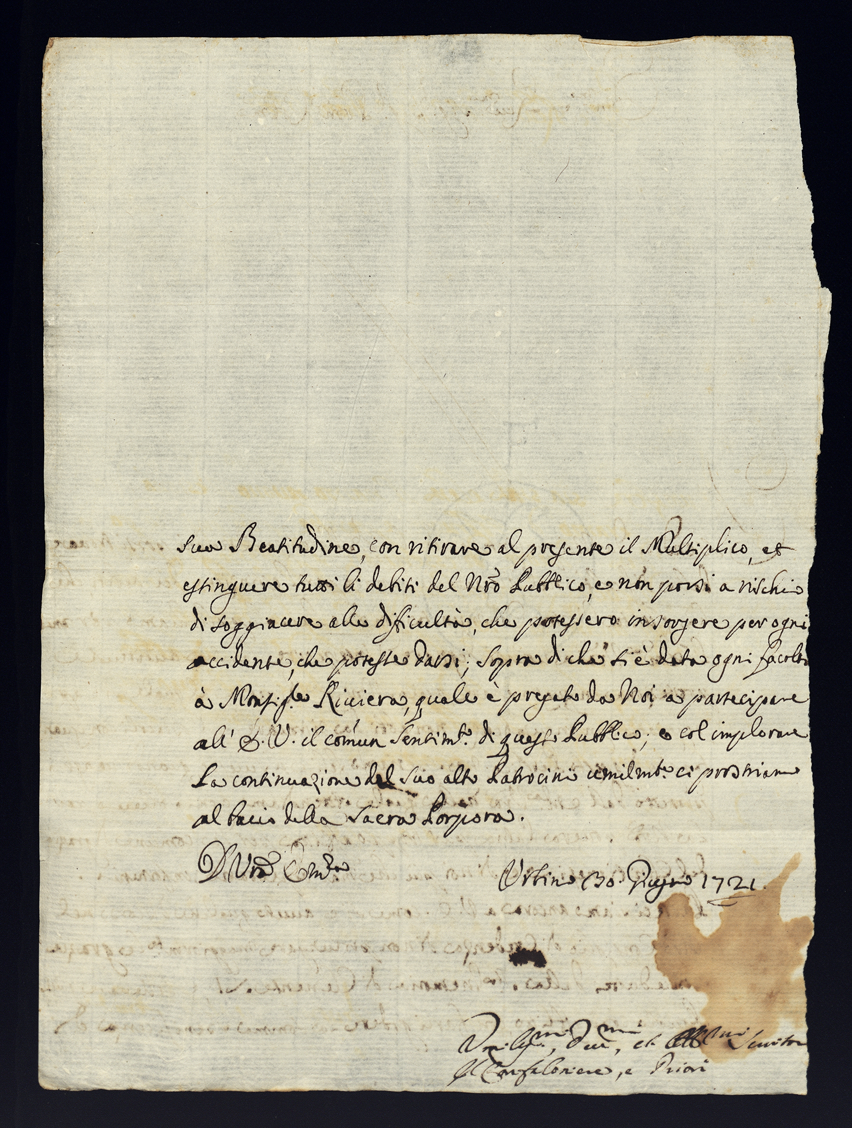 sua Beatitudine, con ritirare al presente il Multiplico, et
estinguere tutti li debiti del Nrõ Pubblico, e non porsi a rischio
di soggiacere alle difficultà, che potessero insorgere per ogni
accidente, che potesse darsi; sopra di che si è data ogni facoltà
à Monsigre. Riviera, quale è pregato da Noi a partecipare
all' E. V. il comun Sentimto. di questo Pubblico; e col implorare
La continuazione del suo alto Patrocinio umilmte. ci prostriamo
al bacio della Sacra Porpora.
D. Vrã Emza
Urbino 30. Giugno 1721.
Umilmi, Dmi, et Servitori
Il Confaloniere, e Priori